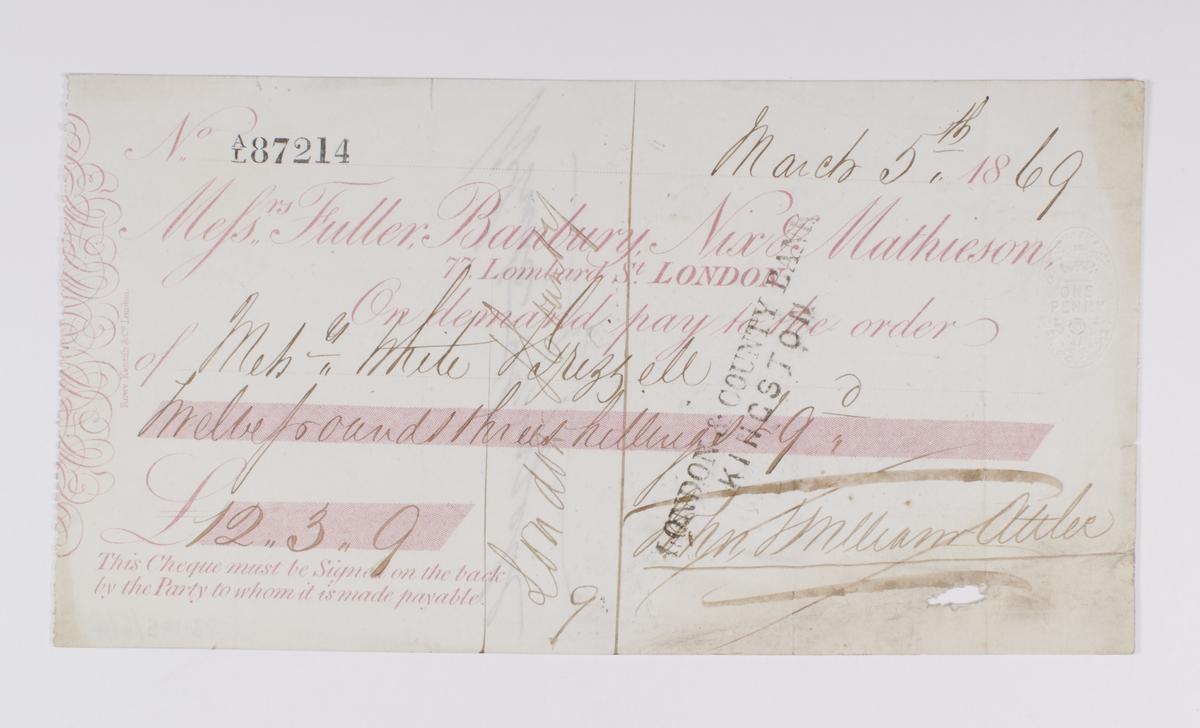 No A/L 87214
March 5th 1869
Messrs Fuller, Banbury, Nix & Mathieson,
77, Lombard St LONDON
On demand pay to the order
of Messrs White & Frizzell
Twelve pounds three shillings & 9d
£12 " 3 " 9
This Cheque must be Signed on the back
by the Party to whom it is made payable.
John William Attlee
London & County
9
LONDON & COUNTY BANK
KINGSTON
ONE
PENNY